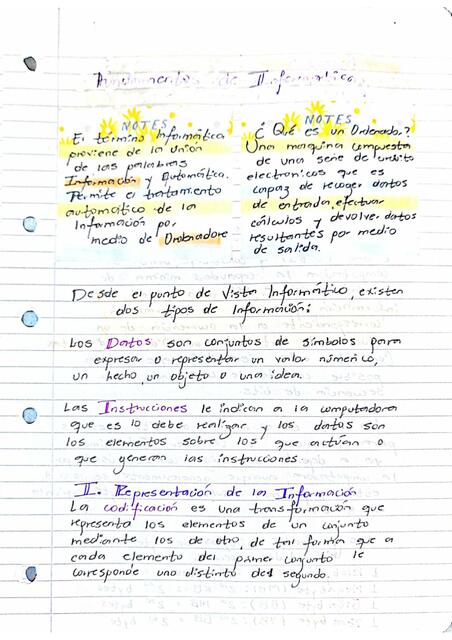 Fundamentos de Informática
NOTES
El término Informática
proviene de la unión
de las palabras
Información y Automática.
Permite el tratamiento
automático de la
Información por
medio de Ordenadore
NOTES
¿Qué es un Ordenado?
Una maquina compuesta
de una serie de
electronicos que es
capaz de recoger datos
de entrada, efectuar
cálculos y devolver datos
resultantes por medio
de salida.
Desde el punto de Vista Informático, existen
dos tipos de Información:
Los Datos son conjuntos de símbolos para
expresar o representar un valor numérico,
un hecho, un objeto o una idea.
Las Instrucciones le indican a la computadora
que es lo debe realizar y los datos son
los elementos sobre los que actúan o
que generan las instrucciones.
II. Representación de la Información
La codificación es una transformación que
representa los elementos de un conjunto
mediante los de otro, de tal forma que a
cada elemento del primer conjunto le
corresponde uno distinto del segundo.